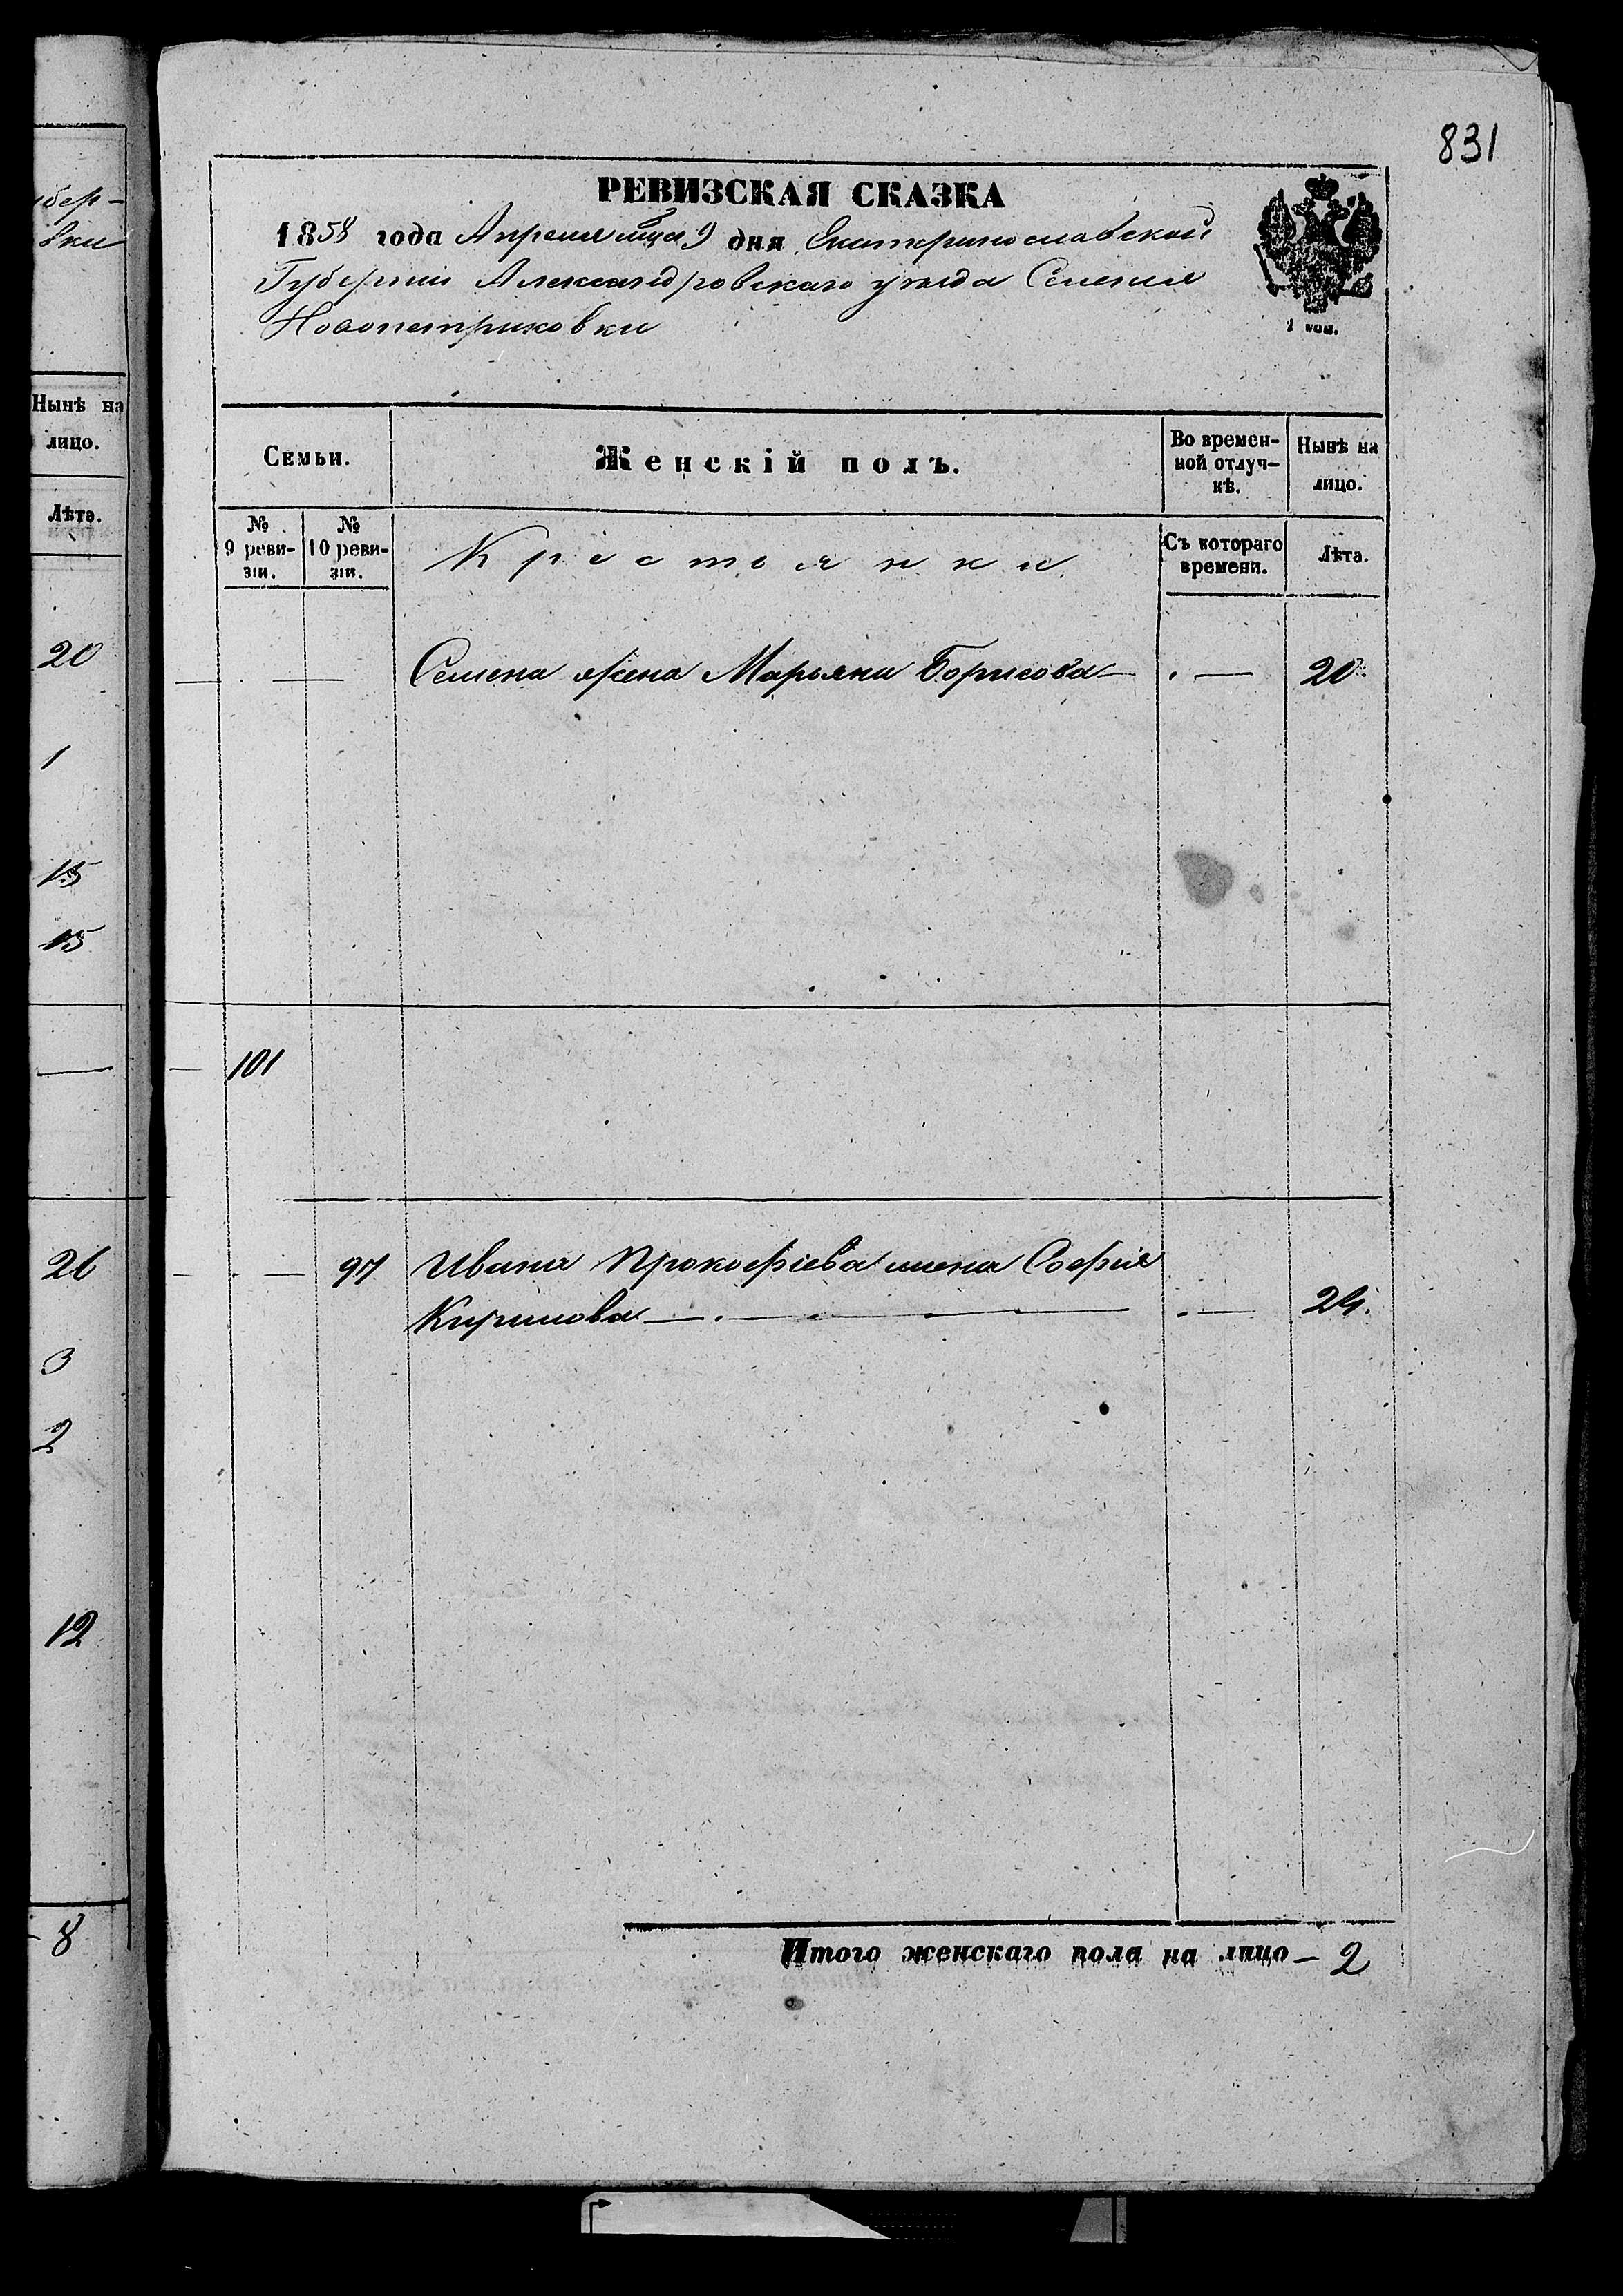 831
убер-
вки
РЕВИЗСКАЯ СКАЗКА
1858 года Апреля мца 9 дня Екатеринославской
Губернии Александровскаго уѣзда Селения
Новопетриковки
1 коп.
Нынѣ на
лицо.
Лѣта.
Семьи.
Женскій полъ.
Во времен-
ной отлуч-
кѣ.
Нынѣ на
лицо.
№
9 реви-
зіи.
№
10 реви-
зіи.
Крестьянки
Съ котораго
времени.
Лѣта.
20
Семена жена Марьяна Борисова — . — 20
1
15
15
101
26
97 Ивана Прокофіева жена Софія
Кирилова — . — 24.
3
2
12
8
Итого женскаго пола на лицо – 2